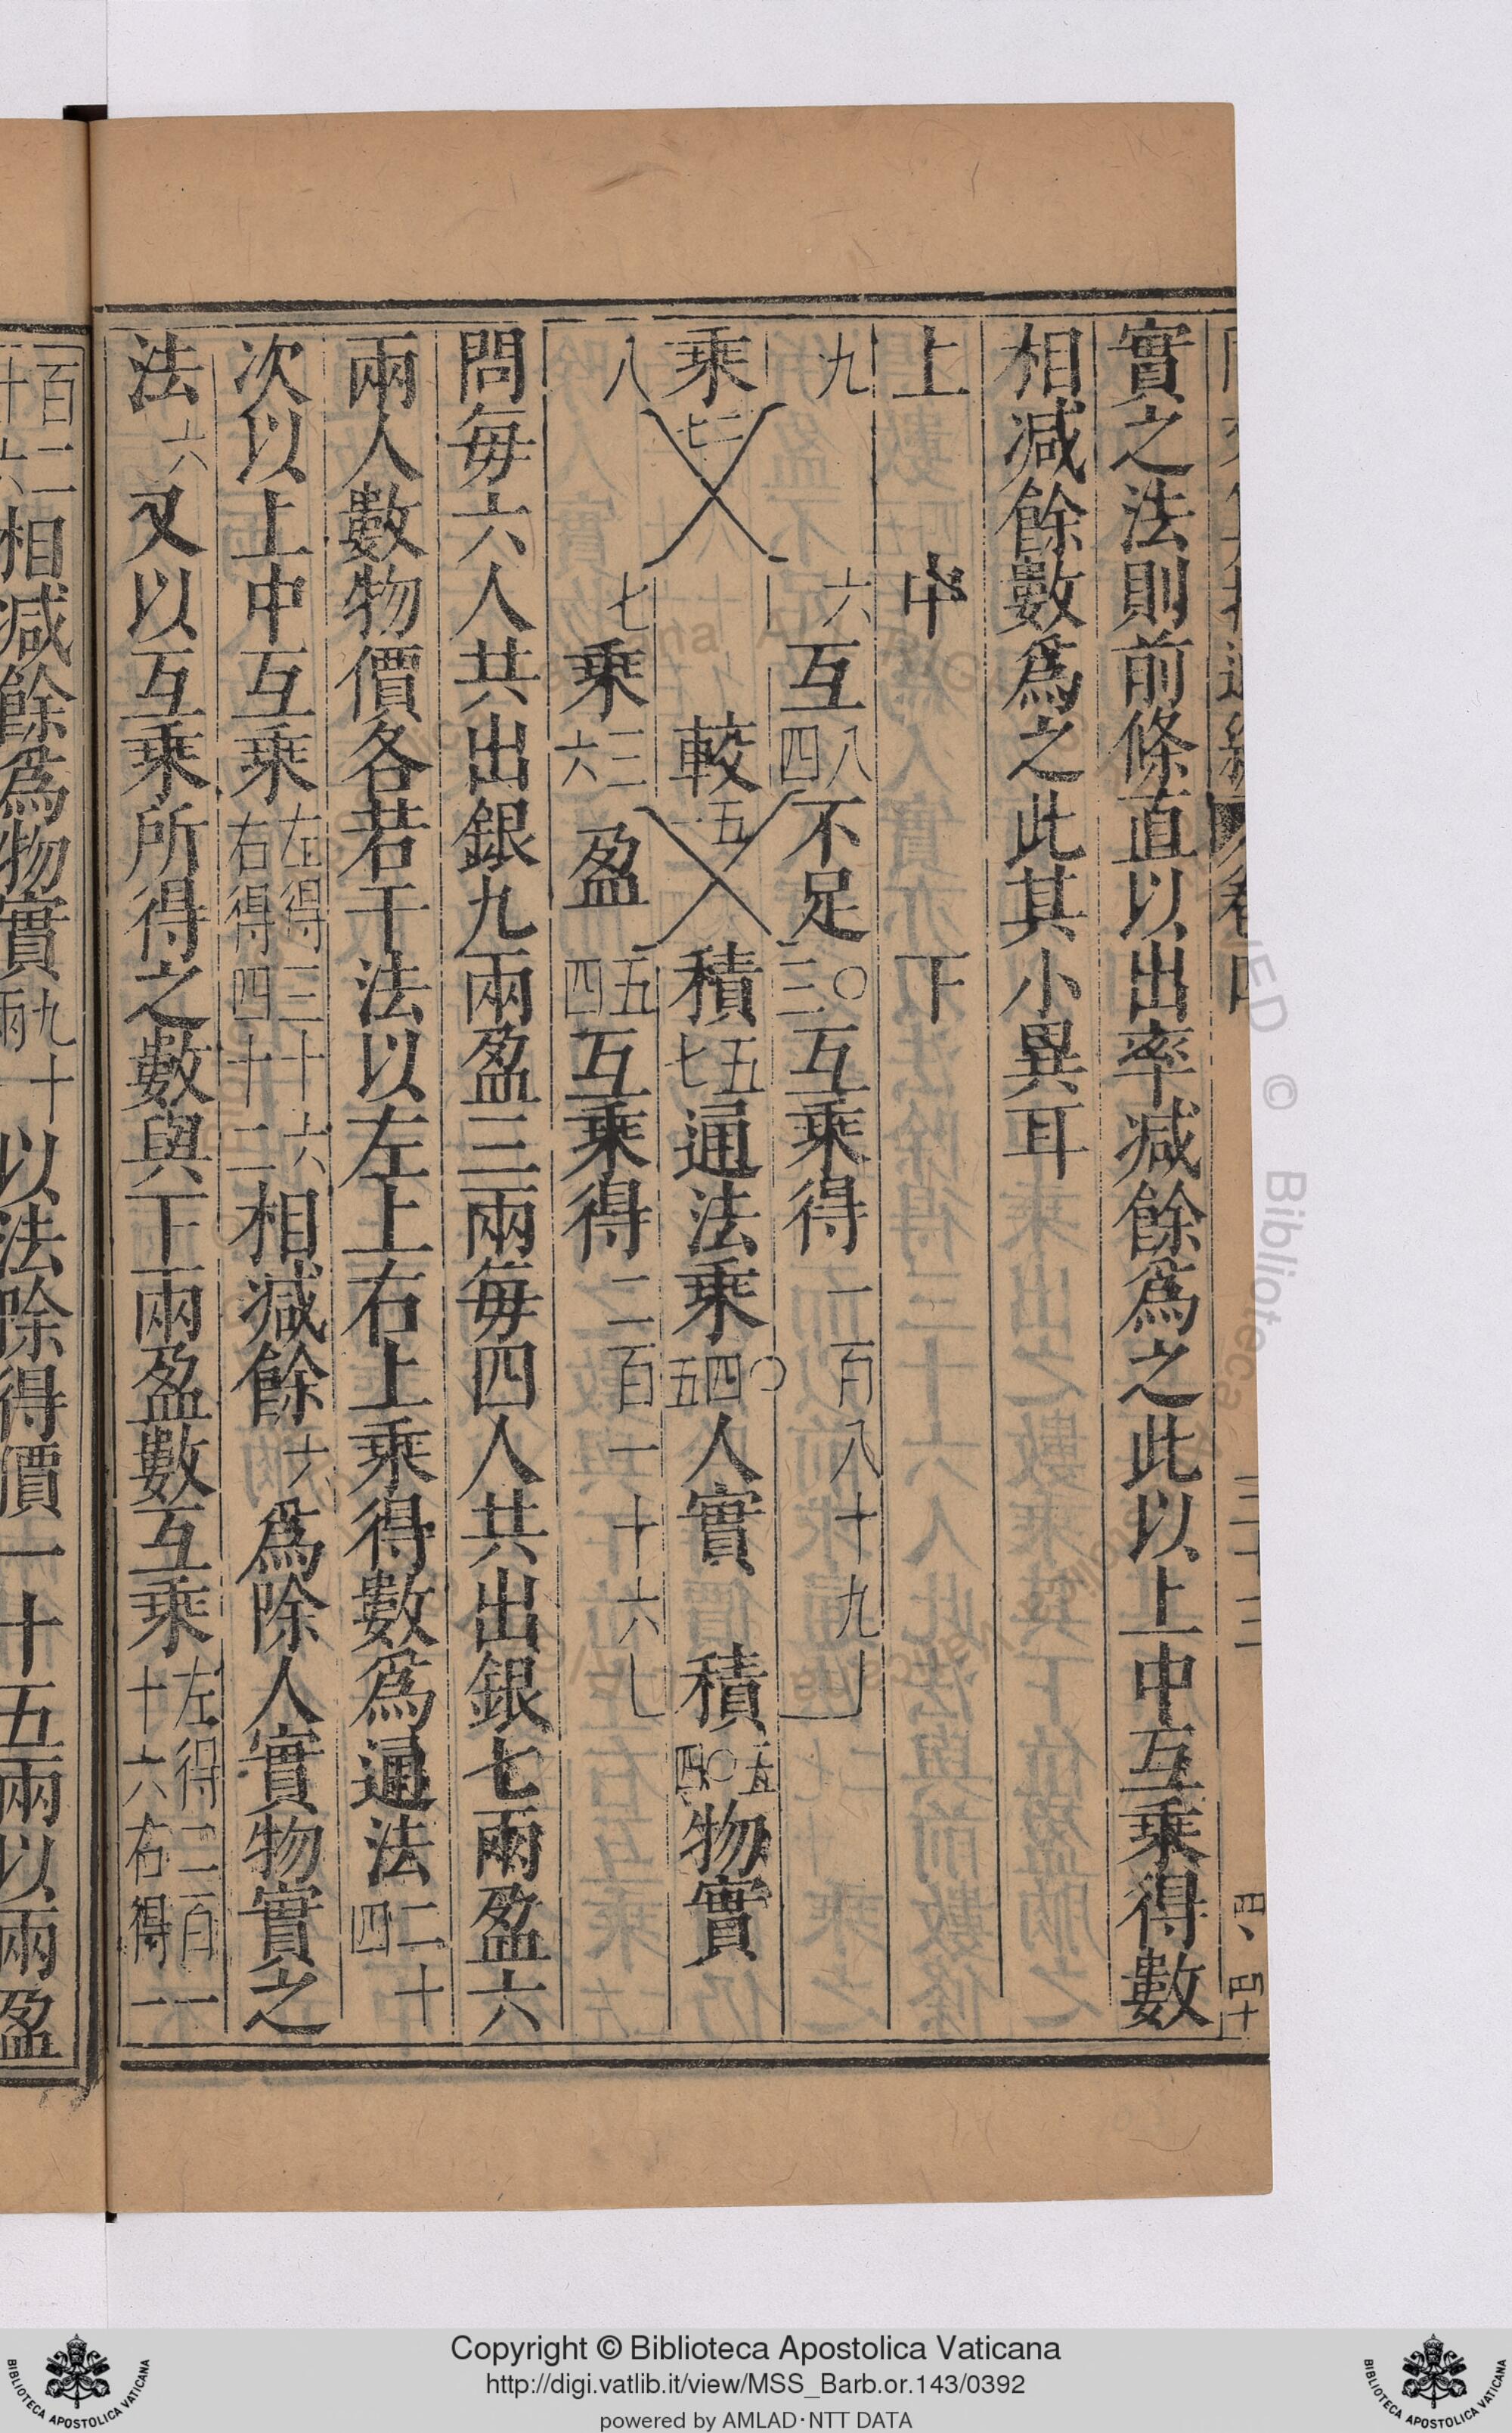 實之法則前條直以出率減餘爲之此以上中互乘得數
相減餘數爲之此其小異耳
上 中 下
九 六 互 四八 不足 三〇 互乘得 一百八十九
乘 七二 較 一五 積 七五 通法乘 五四〇 人實 積 四〇五 物實
八 七 乘 六三 盈 四五 互乘得 二百一十六
問每六人共出銀九兩盈三兩每四人共出銀七兩盈六
兩人數物價各若干法以左上右上乘得數爲通法二十四
次以上中互乘左得三十六右得四十二相減餘六爲除人實物實之
法六又以互乘所得之數與下兩盈數互乘左得二百一十六右得一
百二十六相減餘爲物實九十兩以法除得價一十五兩以兩盈
Copyright © Biblioteca Apostolica Vaticana
http://digi.vatlib.it/view/MSS_Barb.or.143/0392
powered by AMLAD·NTT DATA
BIBLIOTECA APOSTOLICA VATICANA
BIBLIOTECA APOSTOLICA VATICANA